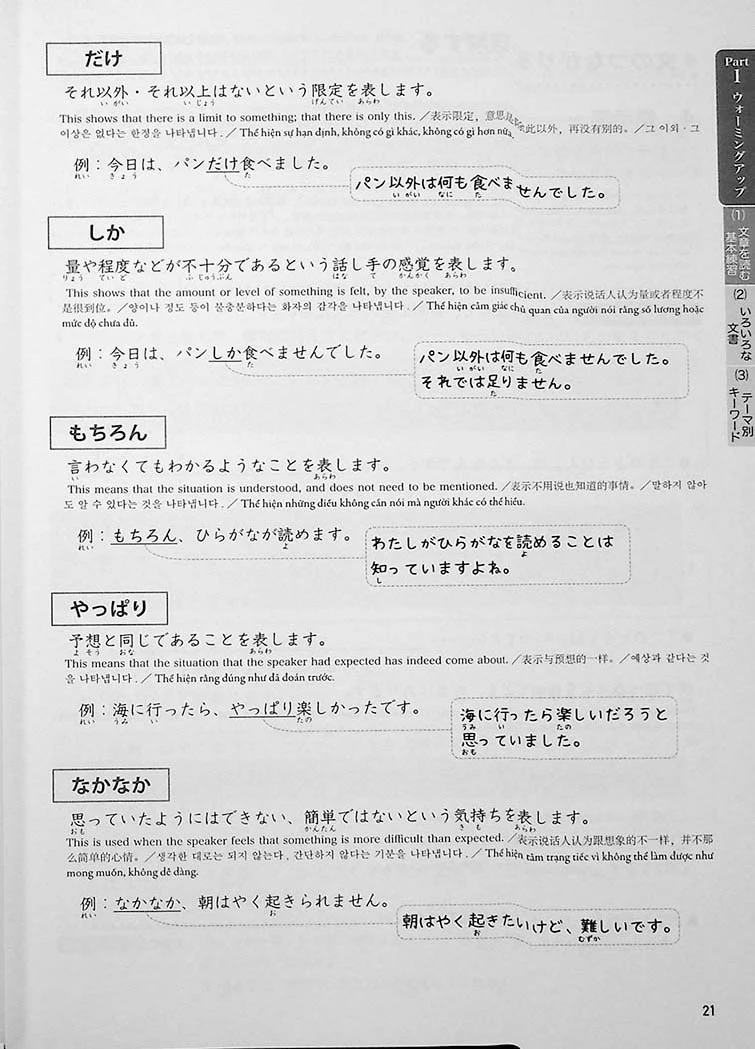 だけ
それ以外・それ以上はないという限定を表します。
いがい いじょう げんてい あらわ
This shows that there is a limit to something; that there is only this. ／表示限定，意思是除此以外，再没有别的。／그 이외・그
이상은 없다는 한정을 나타냅니다. ／ Thể hiện sự hạn định, không có gì khác, không có gì hơn nữa.
例：今日は、パンだけ食べました。
れい きょう た
パン以外は何も食べませんでした。
いがい なに た
しか
量や程度などが不十分であるという話し手の感覚を表します。
りょう ていど ふじゅうぶん はな て かんかく あらわ
This shows that the amount or level of something is felt, by the speaker, to be insufficient. ／表示说话人认为量或者程度不
是很到位。／양이나 정도 등이 불충분하다는 화자의 감각을 나타냅니다. ／ Thể hiện cảm giác chủ quan của người nói rằng số lượng hoặc
mức độ chưa đủ.
例：今日は、パンしか食べませんでした。
れい きょう た
パン以外は何も食べませんでした。
いがい なに た
それでは足りません。
た
もちろん
言わなくてもわかるようなことを表します。
い あらわ
This means that the situation is understood, and does not need to be mentioned. ／表示不用说也知道的事情。／말하지 않아
도 알 수 있다는 것을 나타냅니다. ／ Thể hiện những điều không cần nói mà người khác có thể hiểu.
例：もちろん、ひらがなが読めます。
れい よ
わたしがひらがなを読めることは
よ
知っていますよね。
し
やっぱり
予想と同じであることを表します。
よそう おな あらわ
This means that the situation that the speaker had expected has indeed come about. ／表示与预想的一样。／예상과 같다는 것
을 나타냅니다. ／ Thể hiện rằng đúng như đã đoán trước.
例：海に行ったら、やっぱり楽しかったです。
れい うみ い たの
海に行ったら楽しいだろうと
うみ い たの
思っていました。
おも
なかなか
思っていたようにはできない、簡単ではないという気持ちを表します。
おも かんたん きも あらわ
This is used when the speaker feels that something is more difficult than expected. ／表示说话人认为跟想象的不一样，并不那
么简单的心情。／생각한 대로는 되지 않는다, 간단하지 않다는 기분을 나타냅니다. ／ Thể hiện tâm trạng tiếc vì không thể làm được như
mong muốn, không dễ dàng.
例：なかなか、朝はやく起きられません。
れい お
朝はやく起きたいけど、難しいです。
お むずか
Part
I
ウォーミングアップ
(1) 文章を読む
基本練習
(2) いろいろな
文書
(3) テーマ別
キーワード
21